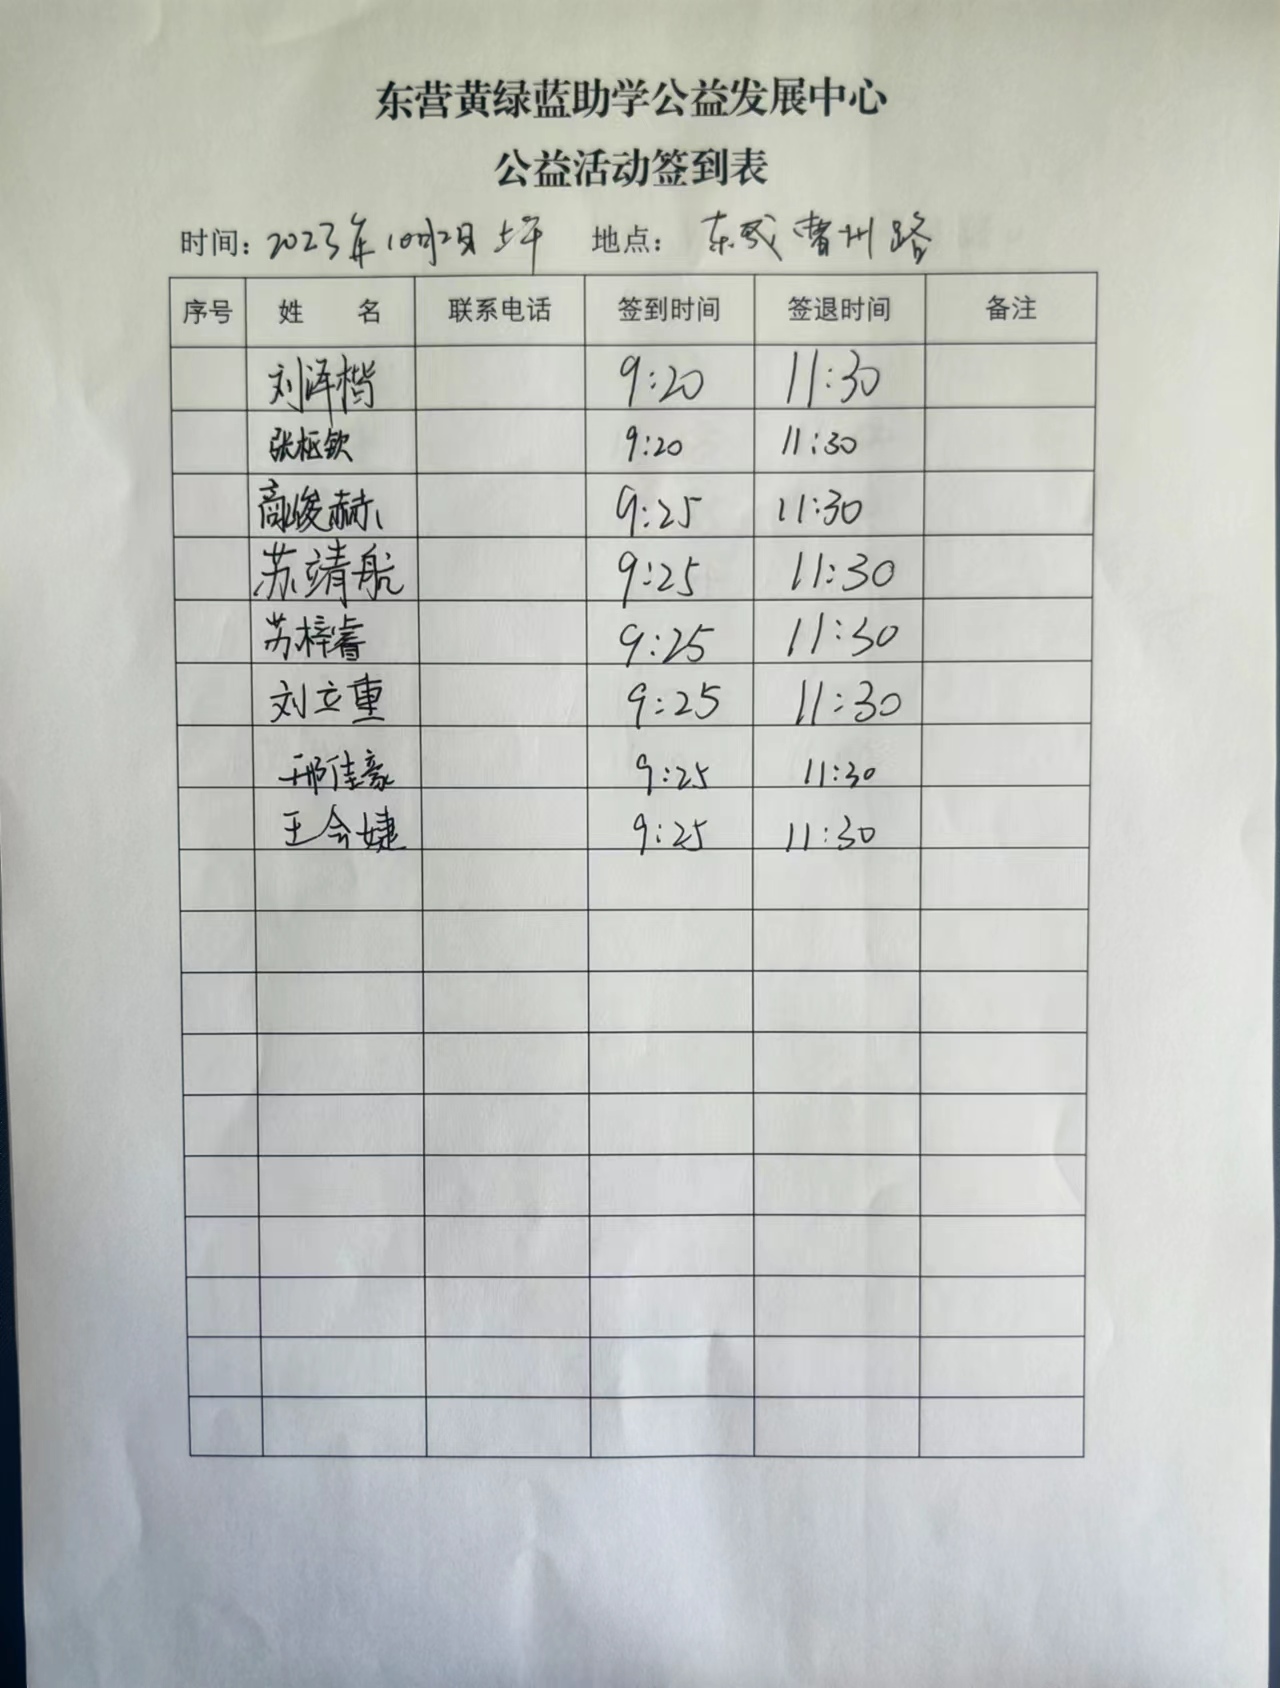 东营黄绿蓝助学公益发展中心
公益活动签到表
时间：2023年10月2日上午 地点：东城曹州路
序号 姓 名 联系电话 签到时间 签退时间 备注
刘泽楷 9:20 11:30
张枢钦 9:20 11:30
高俊赫 9:25 11:30
苏靖航 9:25 11:30
苏梓睿 9:25 11:30
刘立重 9:25 11:30
邢佳豪 9:25 11:30
王会婕 9:25 11:30